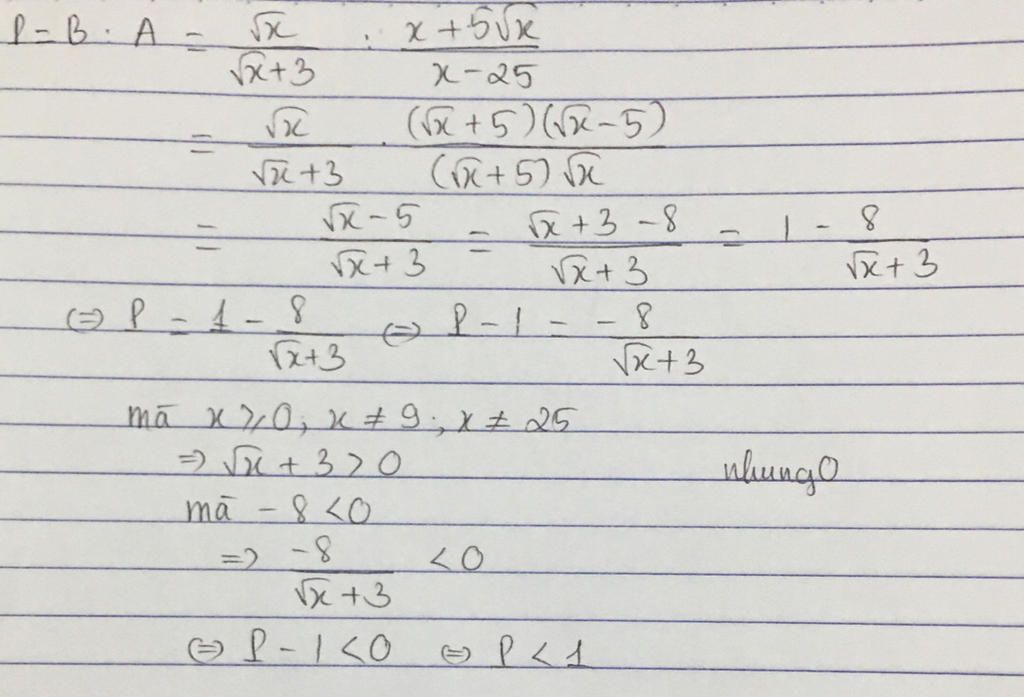 P = B : A = √x/(√x+3) : (x+5√x)/(x-25)
= √x/(√x+3) . (√x+5)(√x-5)/((√x+5)√x)
= (√x-5)/(√x+3) = (√x+3-8)/(√x+3) = 1 - 8/(√x+3)
⇔ P = 1 - 8/(√x+3) ⇔ P - 1 = -8/(√x+3)
mā x ⩾ 0; x ≠ 9; x ≠ 25
⇒ √x + 3 > 0 nhung0
mā -8 < 0
⇒ -8/(√x+3) < 0
⇔ P - 1 < 0 ⇔ P < 1